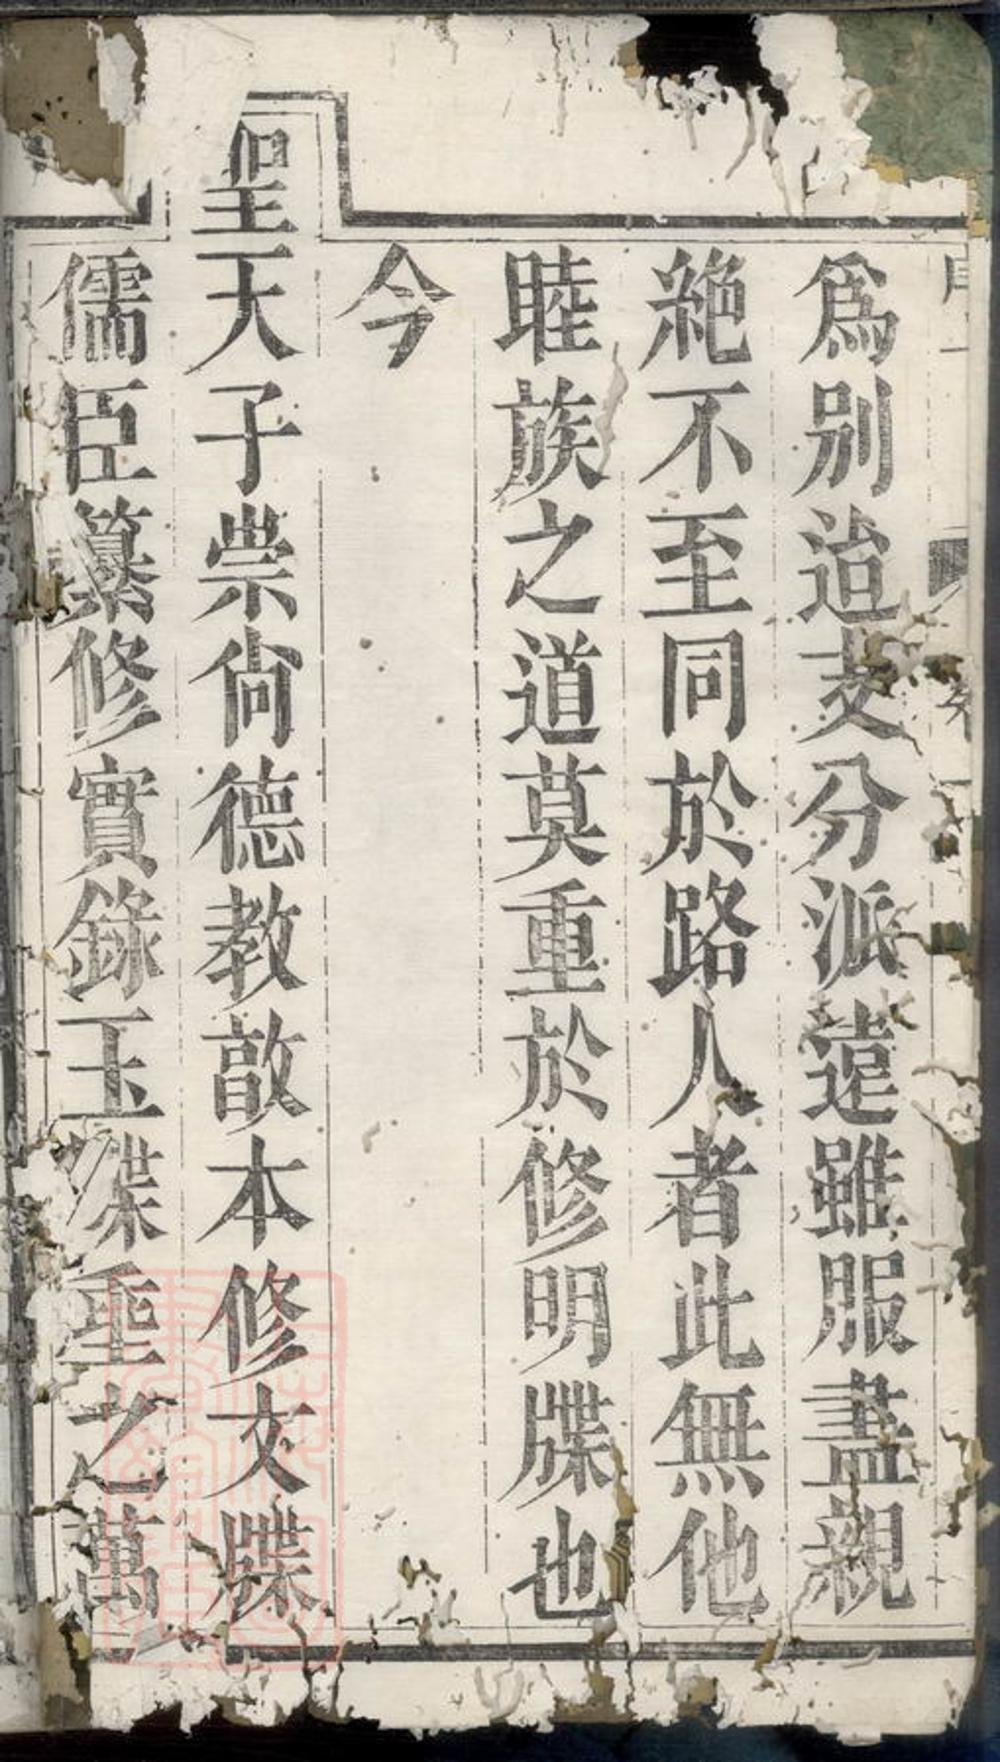 爲別迨支分派遠雖服盡親
絶不至同於路人者此無他
睦族之道莫重於修明牒也
今
聖天子崇尙德教敦本修文牒
儒臣纂修實錄玉牒垂之萬